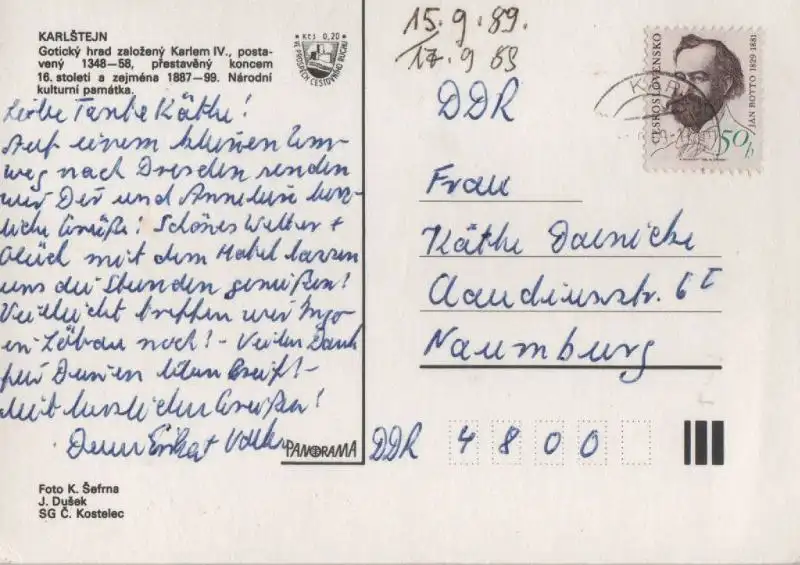 KARLŠTEJN
Gotický hrad založený Karlem IV., posta-
vený 1348–58, přestavěný koncem
16. století a zejména 1887–99. Národní
kulturní památka.
Kčs 0,20
VE PROSPĚCH CESTOVNÍHO RUCHU
15. 9. 89.
17. 9 89
ČESKOSLOVENSKO
JÁN BOTTO 1829-1881
50h
Liebe Tante Käthe!
Auf einem kleinen Um-
weg nach Dresden senden
wir Dir und Annelise herz-
liche Grüße! Schönes Wetter +
Glück mit dem Hotel lassen
uns die Stunden genießen!
Vielleicht treffen wir Ingo
in Löbau noch! – Vielen Dank
für Deinen lieben Brief! –
Mit herzlichen Grüßen!
Deine Erika + Volker
DDR
Frau
Käthe
Claudiusstr. 6 I
Naumburg
DDR 4 8 0 0
PANORAMA
Foto K. Šefrna
J. Dušek
SG Č. Kostelec